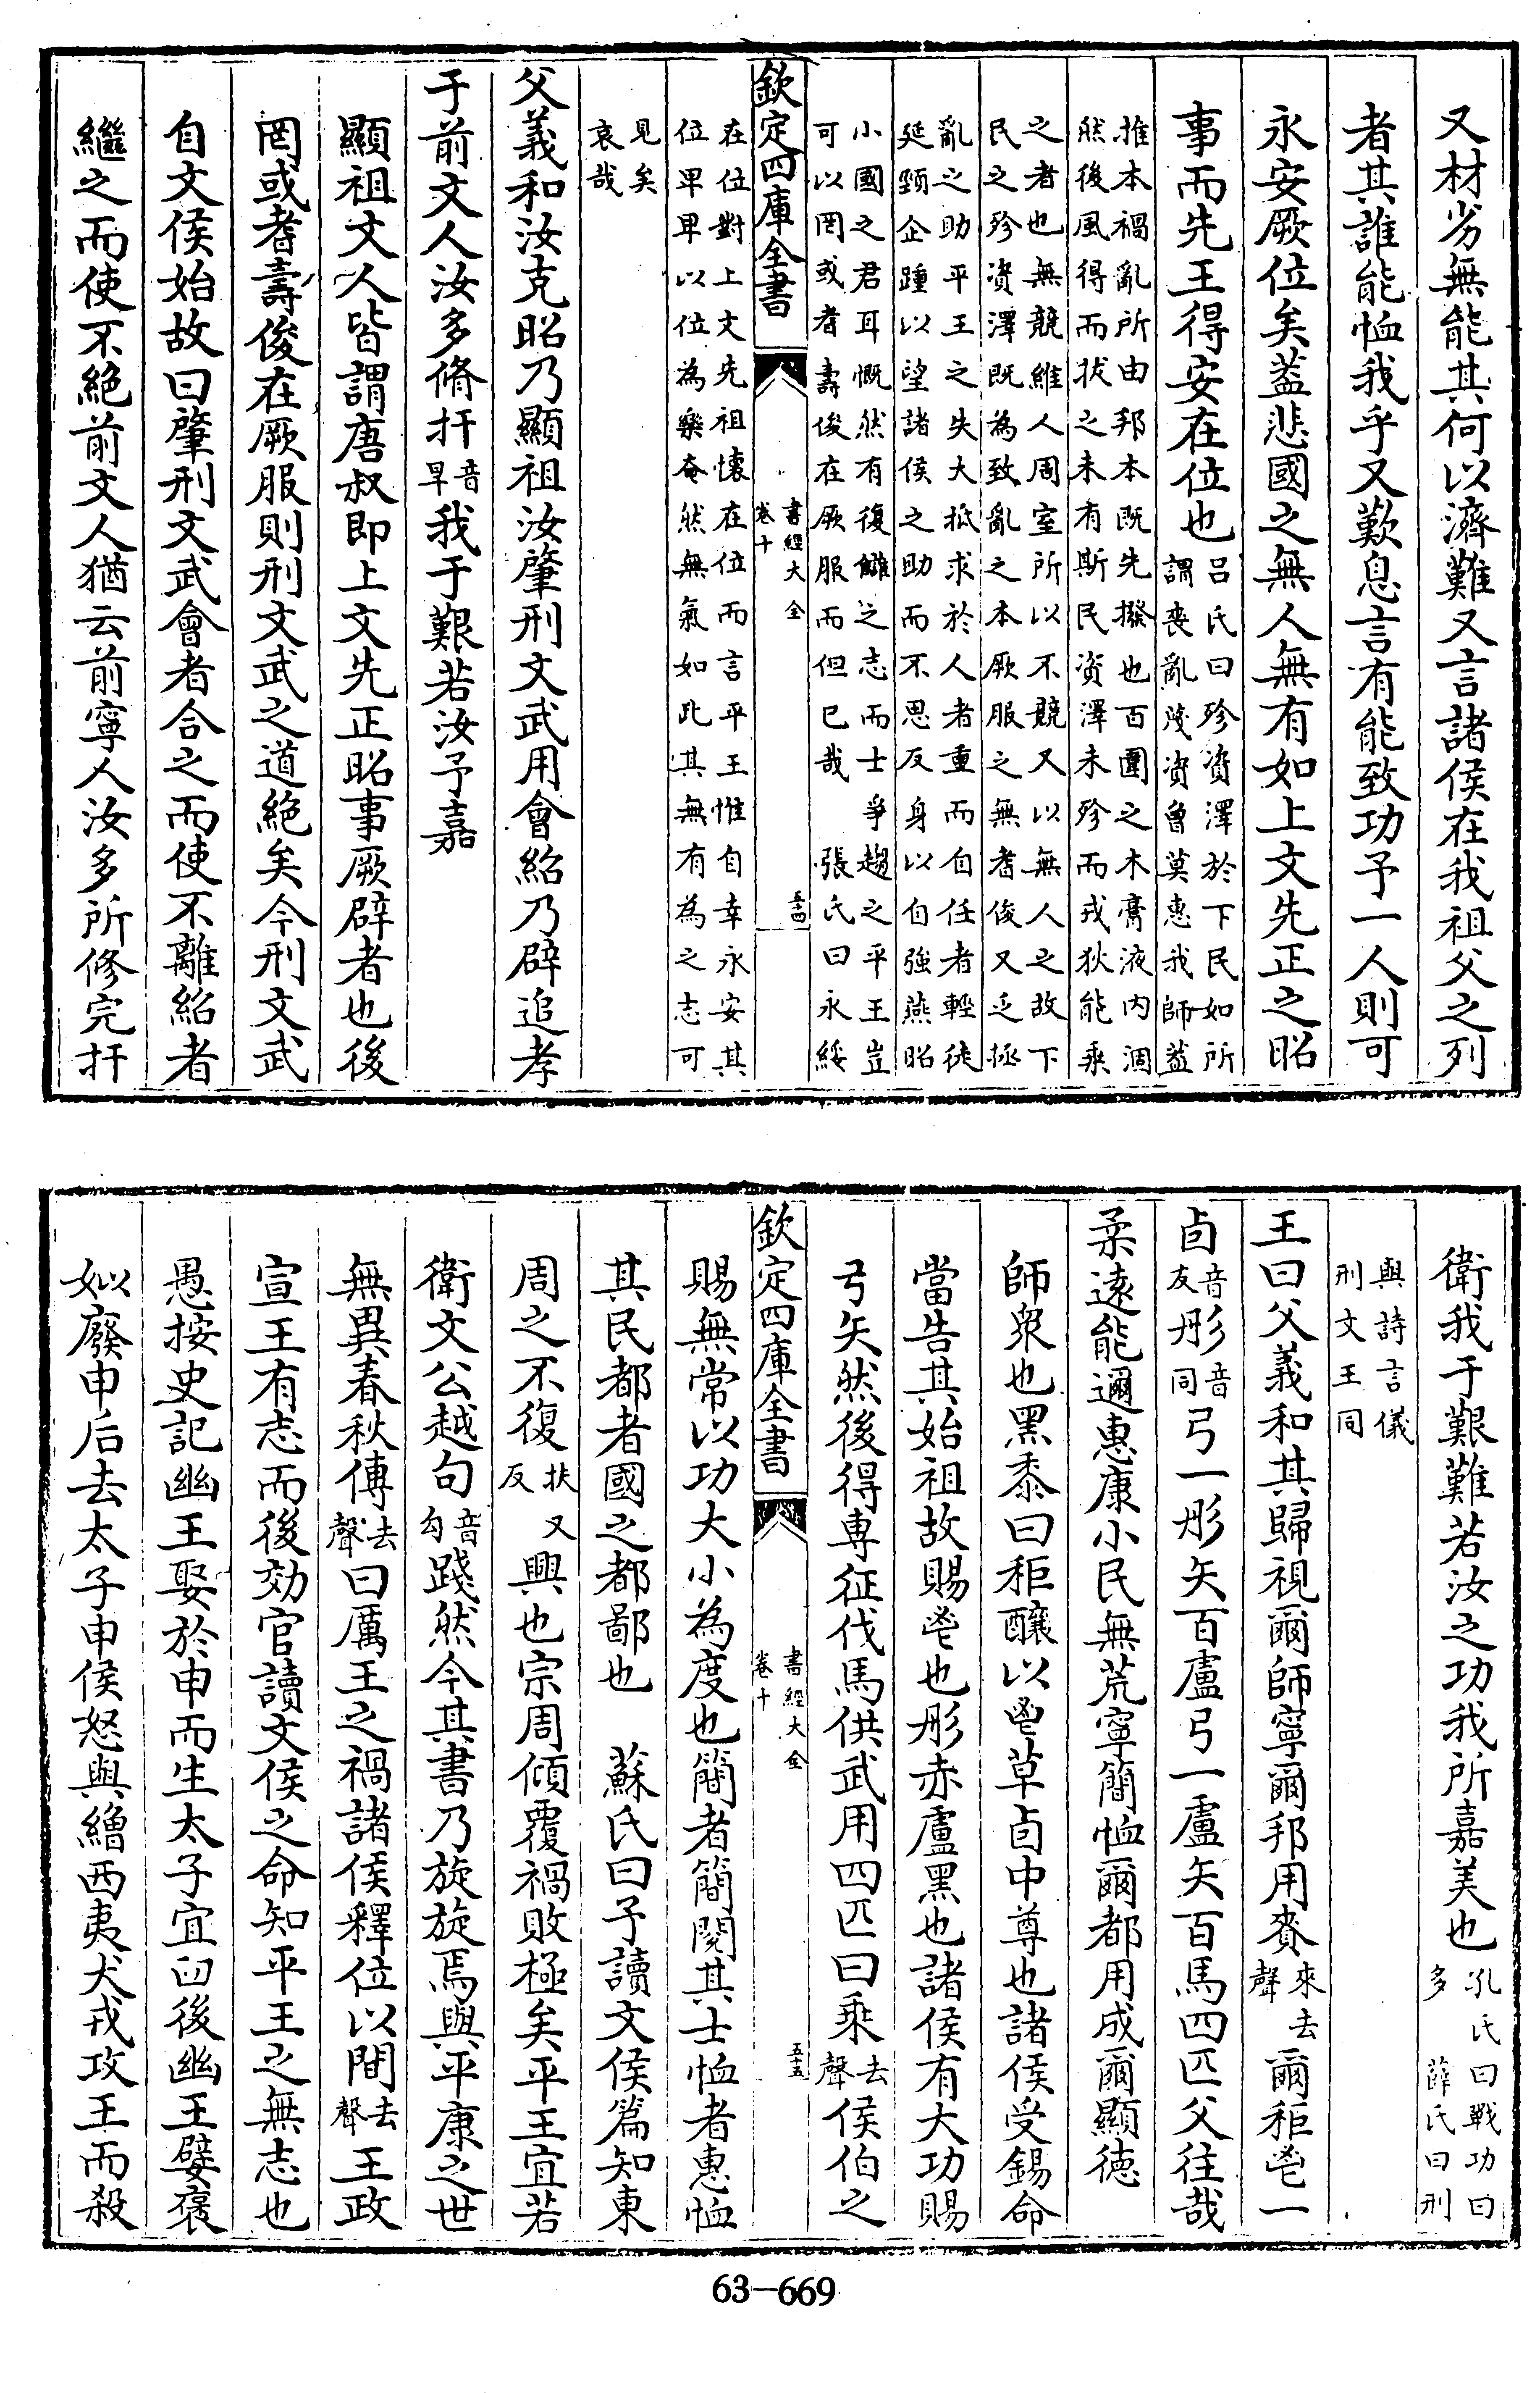 又材劣無能其何以濟難又言諸侯在我祖父之列
者其誰能恤我乎又歎息言有能致功予一人則可
永安厥位矣葢悲國之無人無有如上文先正之昭
事而先王得安在位也
呂氏曰殄資澤於下民如所
謂喪亂蔑資曾莫惠我師葢
推本禍亂所由邦本既先撥也百圍之木膏液内涸
然後風得而拔之未有斯民資澤未殄而戎狄能乘
之者也無競維人周室所以不競又以無人之故下
民之殄資澤既為致亂之本厥服之無耆俊又乏拯
亂之助平王之失大抵求於人者重而自任者輕徒
延頸企踵以望諸侯之助而不思反身以自強燕昭
小國之君耳慨然有復讎之志而士爭趨之平王豈
可以罔或耆壽俊在厥服而但已哉 張氏曰永綏
欽定四庫全書
書經大全
卷十
五十四
在位對上文先祖懷在位而言平王惟自幸永安其
位卑卑以位為樂奄然無氣如此其無有為之志可
見矣
哀哉
父義和汝克昭乃顯祖汝肇刑文武用會紹乃辟追孝
于前文人汝多脩扞音旱我于艱若汝予嘉
顯祖文人皆謂唐叔即上文先正昭事厥辟者也後
罔或耆壽俊在厥服則刑文武之道絶矣今刑文武
自文侯始故曰肇刑文武會者合之而使不離紹者
繼之而使不絶前文人猶云前寧人汝多所修完扞
衛我于艱難若汝之功我所嘉美也
孔氏曰戰功曰
多 薛氏曰刑
與詩言儀
刑文王同
王曰父義和其歸視爾師寧爾邦用賚來去聲爾秬鬯一
卣音友彤音同弓一彤矢百盧弓一盧矢百馬四匹父往哉
柔遠能邇惠康小民無荒寧簡恤爾都用成爾顯德
師衆也黑黍曰秬釀以鬯草卣中尊也諸侯受錫命
當告其始祖故賜鬯也彤赤盧黑也諸侯有大功賜
弓矢然後得專征伐馬供武用四匹曰乘去聲侯伯之
欽定四庫全書
書經大全
卷十
五十五
賜無常以功大小為度也簡者簡閱其士恤者惠恤
其民都者國之都鄙也 蘇氏曰予讀文侯篇知東
周之不復扶又反興也宗周傾覆禍敗極矣平王宜若
衛文公越句音勾踐然今其書乃旋旋焉與平康之世
無異春秋傳去聲曰厲王之禍諸侯釋位以間去聲王政
宣王有志而後効官讀文侯之命知平王之無志也
愚按史記幽王娶於申而生太子宜臼後幽王嬖褒
姒廢申后去太子申侯怒與繒西夷犬戎攻王而殺
63-669